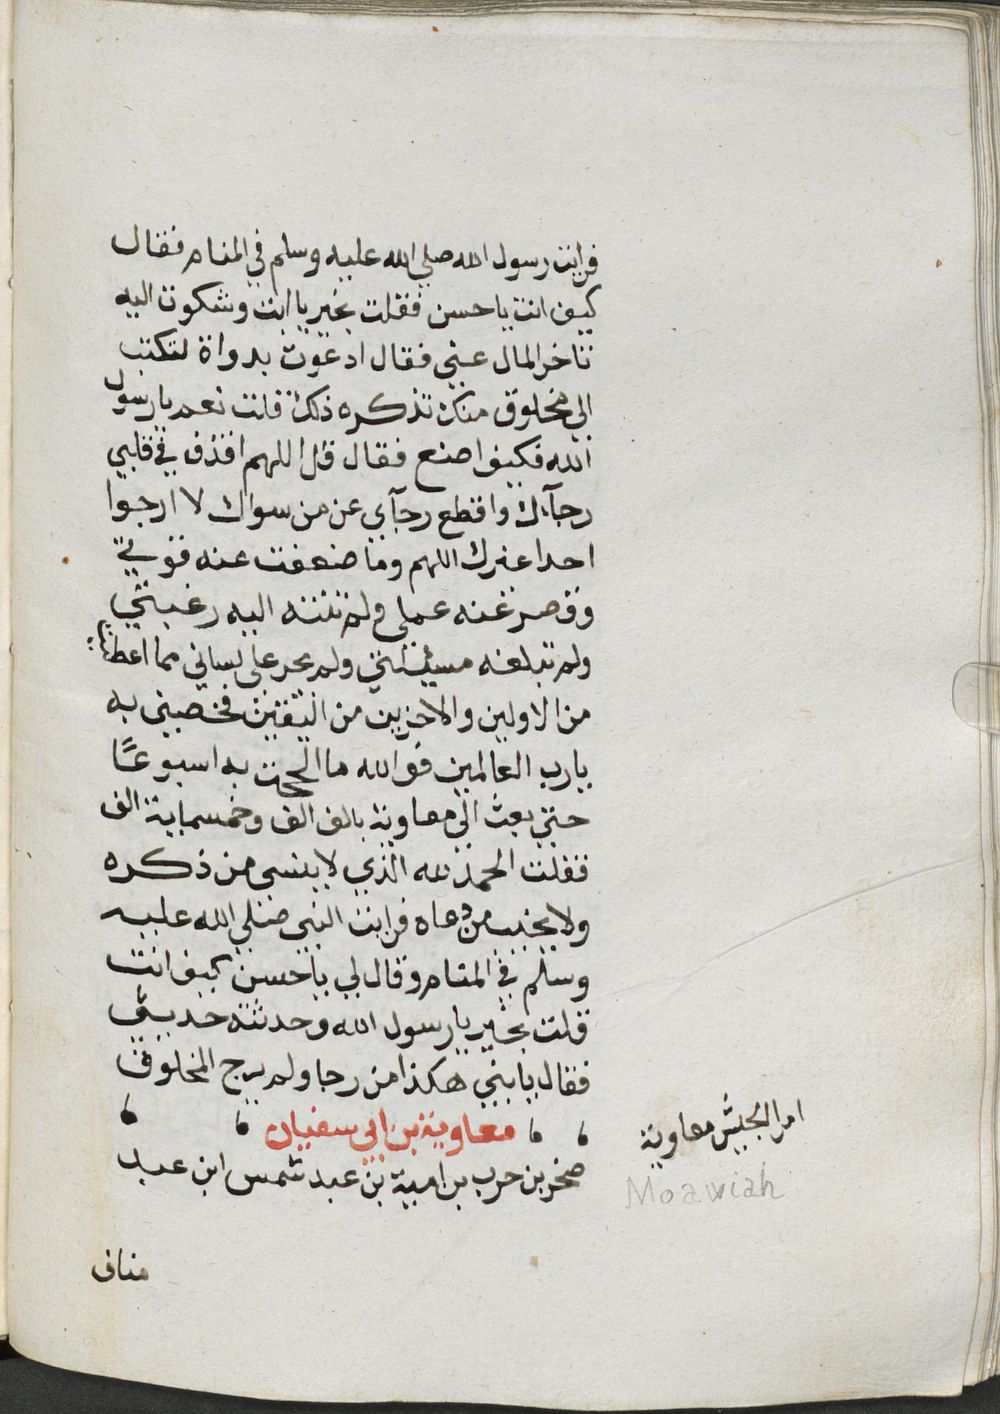 فرايت رسول الله صلي الله عليه وسلم في المنام فقال
كيف انت يا حسن فقلت بخير يا ابت وشكوت اليه
تاخر المال عني فقال ادعوت بدواة لتكتب
الي مخلوق منك تذكره ذلك قلت نعم يا رسول
الله فكيف اصنع فقال قل اللهم اقذف في قلبي
رجآءك واقطع رجآي عن من سواك لا ارجوا
احدا غيرك اللهم وما ضعفت عنه قوتي
وقصر عنه عملي ولم تنته اليه رغبتي
ولم تبلغه مسئلتي ولم يجر علي لساني مما اعطيت
من الاولين والاخرين من اليقين فخصني به
يا رب العالمين فوالله ما الححت به اسبوعًا
حتي بعث الي معاوية بالف الف وخمسماية الف
فقلت الحمد لله الذي لا ينسي من ذكره
ولا يخيب من دعاه فرايت النبي صلي الله عليه
وسلم في المنام وقال لي يا حسن كيف انت
قلت بخير يا رسول الله وحدثته حديثي
فقال يا بني هكذا من رجا ولم يرج المخلوق
معاوية بن ابي سفيان
صخر بن حرب بن امية بن عبد شمس ابن عبد
مناف
امر الجيش معاوية
Moawiah